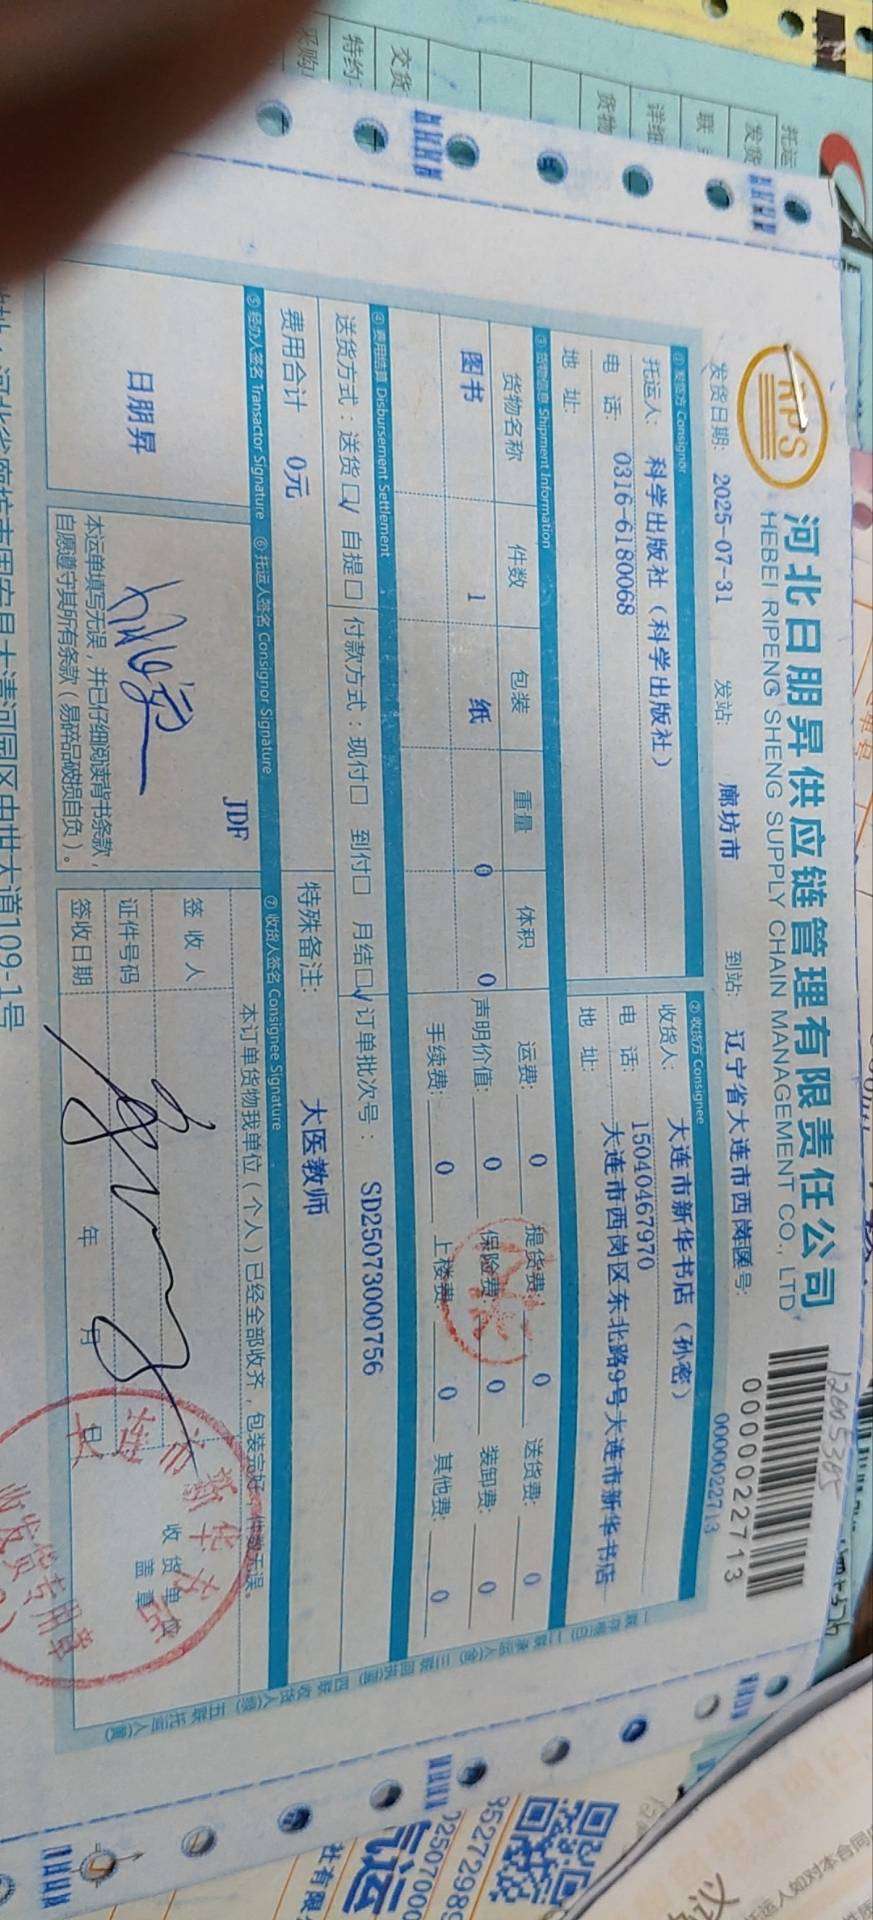 RPS
河北日朋昇供应链管理有限责任公司
HEBEI RIPENG SHENG SUPPLY CHAIN MANAGEMENT CO., LTD
12005385
0000022713
发货日期: 2025-07-31 发站: 廊坊市 到站: 辽宁省大连市西岗区 号: 0000022713
① 发货方 Consignor
托运人: 科学出版社（科学出版社）
电 话: 0316-6180068
地 址:
② 收货方 Consignee
收货人: 大连市新华书店（孙密）
电 话: 15040467970
地 址: 大连市西岗区东北路9号大连市新华书店
③ 货物信息 Shipment Information
货物名称 件数 包装 重量 体积
图书 1 纸 0 0
运费: 0 提货费: 0 送货费: 0
声明价值: 0 保险费: 0 装卸费: 0
手续费: 0 上楼费: 0 其他费: 0
④ 费用结算 Disbursement Settlement
送货方式：送货☑ 自提☐ 付款方式：现付☐ 到付☐ 月结☑ 订单批次号： SD25073000756
费用合计 0元 特殊备注: 大医教师
⑤ 经办人签名 Transactor Signature ⑥ 托运人签名 Consignor Signature ⑦ 收货人签名 Consignee Signature
日朋昇
JDF
本运单填写无误，并已仔细阅读背书条款，
自愿遵守其所有条款（易碎品破损自负）。
本订单货物我单位（个人）已经全部收齐，包装完好，件数无误。
签 收 人
证件号码
签收日期 年 月 日
收 货 单 位
盖 章
大连市新华书店
收发货专用章
河北省廊坊市固安县大清河园区中世大道109-1号